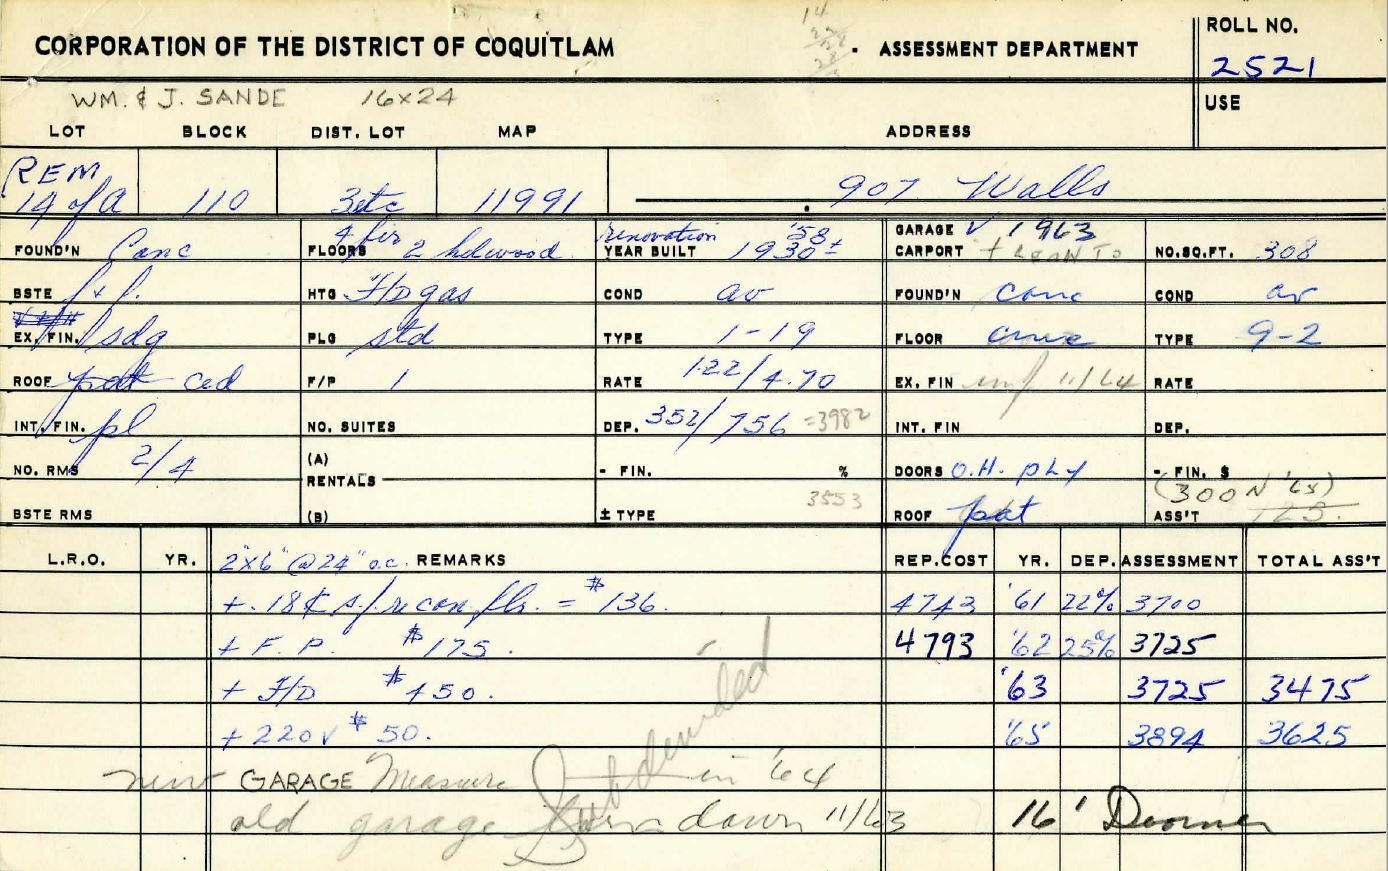 CORPORATION OF THE DISTRICT OF COQUITLAM - ASSESSMENT DEPARTMENT
ROLL NO.
2521
WM. & J. SANDE 16x24
USE
LOT BLOCK DIST. LOT MAP ADDRESS
REM
14 of A 110 3etc 11991 907 Walls
FOUND'N Conc FLOORS 4 fir 2 hdwood renovation '58 YEAR BUILT 1930± GARAGE √ 1963 CARPORT + LEAN TO NO.SQ.FT. 308
BSTE f + p. HTG F/D gas COND av FOUND'N conc COND av
EX. FIN. sdg PLG std TYPE 1-19 FLOOR conc TYPE 9-2
ROOF pat ced F/P 1 RATE 1.22/4.70 EX. FIN unf 11/64 RATE
INT. FIN. pl NO. SUITES DEP. 352/756 =3982 INT. FIN DEP.
NO. RMS 2/4 (A) RENTALS - FIN. % DOORS O.H. PLY - FIN. $
(300 N '65)
BSTE RMS (B) ± TYPE 3553 ROOF pat ASS'T 125.
L.R.O. YR. 2"x6" @ 24" o.c. REMARKS REP.COST YR. DEP. ASSESSMENT TOTAL ASS'T
+ .18¢ s/f recon flr. = $136. 4743 '61 22% 3700
+ F.P. $175. 4793 '62 25% 3725
+ F/D $450. '63 3725 3475
+ 220V $50. '65 3894 3625
Subdivided
new GARAGE Measure in '64
old garage torn down 11/63 16' Doormer